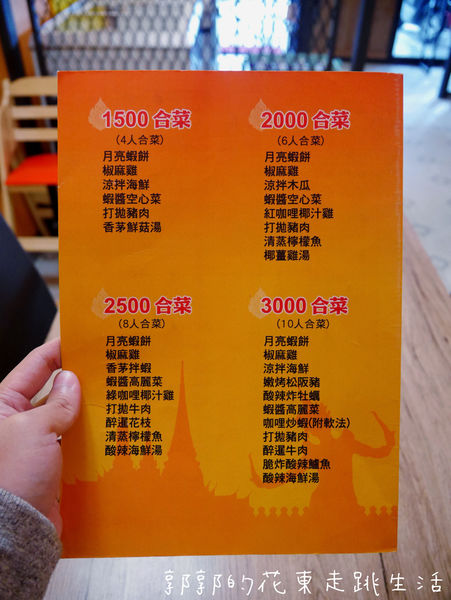 1500 合菜
(4人合菜)
月亮蝦餅
椒麻雞
涼拌海鮮
蝦醬空心菜
打拋豬肉
香茅鮮菇湯
2000 合菜
(6人合菜)
月亮蝦餅
椒麻雞
涼拌木瓜
蝦醬空心菜
紅咖哩椰汁雞
打拋豬肉
清蒸檸檬魚
椰薑雞湯
2500 合菜
(8人合菜)
月亮蝦餅
椒麻雞
香茅拌蝦
蝦醬高麗菜
綠咖哩椰汁雞
打拋牛肉
醉暹花枝
清蒸檸檬魚
酸辣海鮮湯
3000 合菜
(10人合菜)
月亮蝦餅
椒麻雞
涼拌海鮮
嫩烤松阪豬
酸辣炸牡蠣
蝦醬高麗菜
咖哩炒蝦(附軟法)
打拋豬肉
醉暹牛肉
脆炸酸辣鱸魚
酸辣海鮮湯
郭郭的花東走跳生活